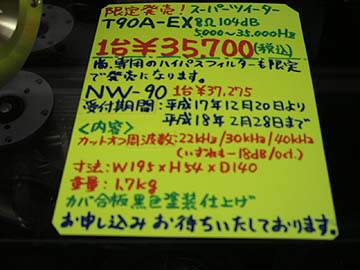 限定発売！スーパーツイーター
T90A-EX 8Ω 104dB
5000〜35,000Hz
1台￥35,700(税込)
尚、専用のハイパスフィルターも限定
で発売になります。
NW-90 1台￥37,275
受付期間：平成17年12月20日より
平成18年2月28日まで
〈内容〉
カットオフ周波数：22kHz/30kHz/40kHz
(いずれも-18dB/oct.)
寸法：W195×H54×D140
重量：1.7kg
カバ合板黒色塗装仕上げ
お申し込みお待ちいたしております。